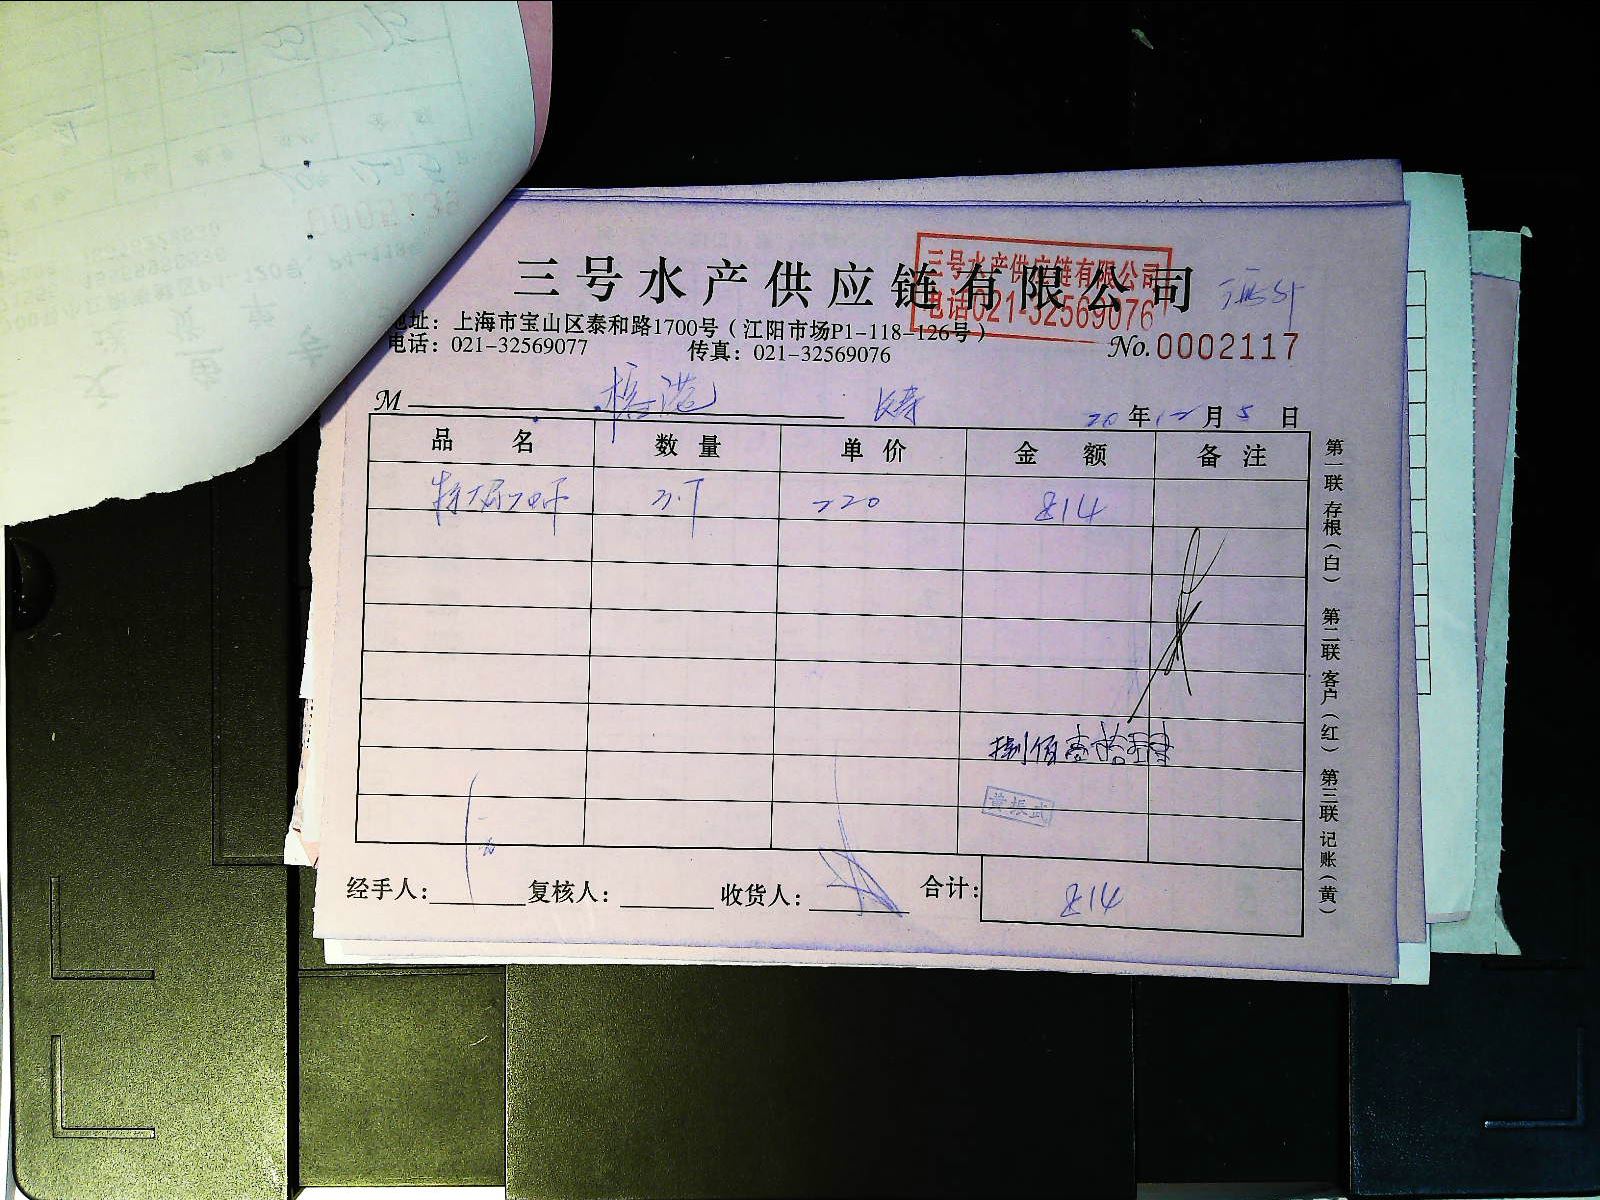 三号水产供应链有限公司
三号水产供应链有限公司
电话021-32569076
地址：上海市宝山区泰和路1700号（江阳市场P1-118-126号）
电话：021-32569077 传真：021-32569076
No.0002117
M
20年12月5日
品名 数量 单价 金额 备注
3.7 220 814
捌佰壹拾肆
黄振武
经手人： 复核人： 收货人： 合计： 814
第一联 存根（白） 第二联 客户（红） 第三联 记账（黄）